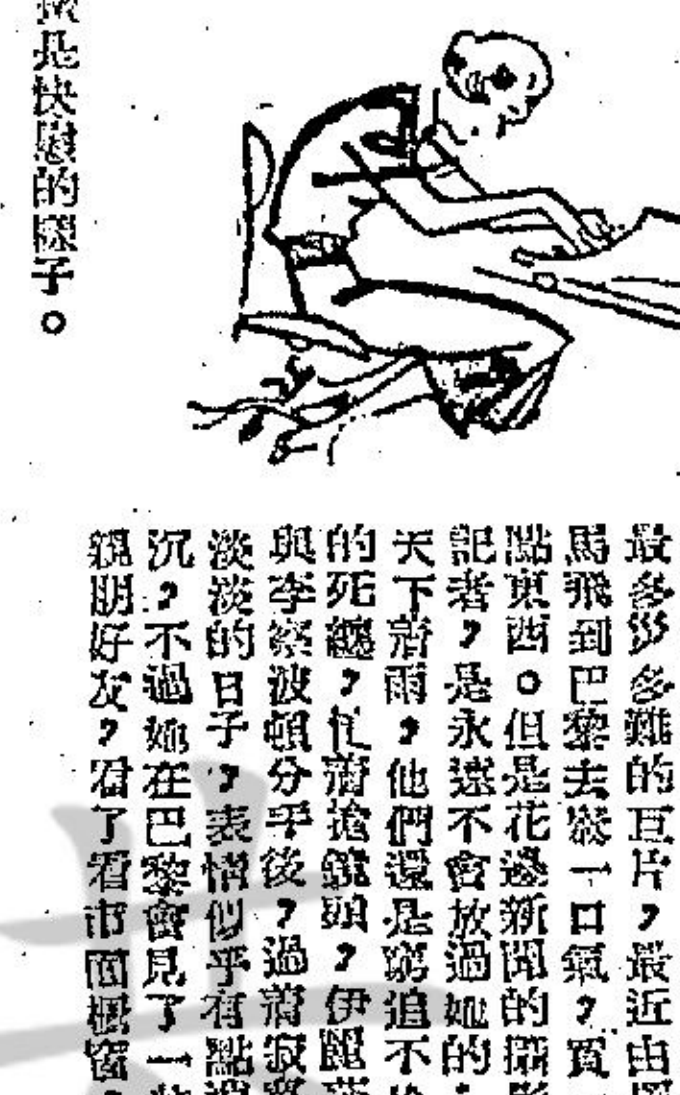 最多災多難的巨片，最近由
馬飛到巴黎去鬆一口氣，買
點東西。但是花邊新聞的攝影
記者，是永遠不會放過她的，
天下著雨，他們還是窮追不
的死纏，忙着搶鏡頭，伊麗
與李察波頓分手後，過着寂寞
淡淡的日子，表情似乎有點
沉，不過她在巴黎會見了一些
親朋好友，看了看市面櫥窗，
是快慰的樣子。